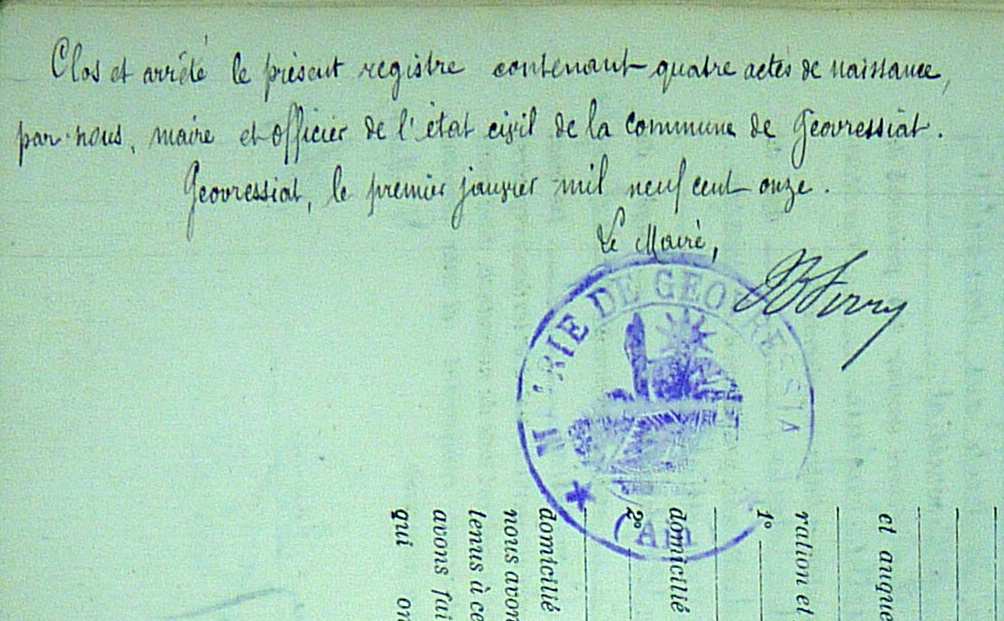 Clos et arrêté le présent registre contenant quatre actes de naissance,
par nous, maire et officier de l'état civil de la commune de Geovressiat.
Geovressiat, le premier janvier mil neuf cent onze.
Le Maire,
MAIRIE DE GEOVRESSIAT
(Ain)
et auque
ration et
1°
domicilié
2°
domicilié
nous avon
tenus à ce
avons fai
qui on